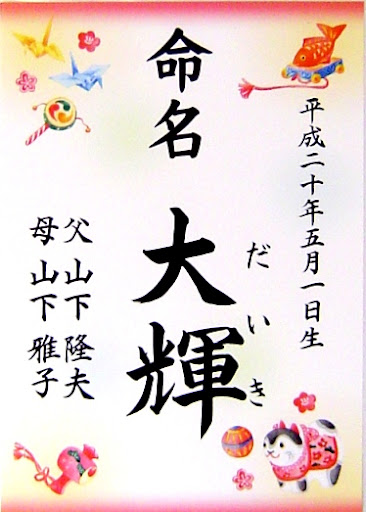 平成二十年五月一日生
命名 大輝
だいき
父 山下 隆夫
母 山下 雅子